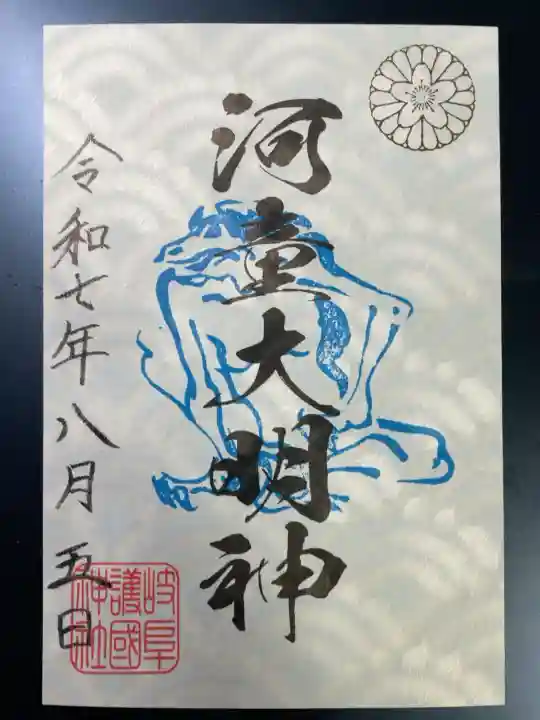 河童大明神
令和七年八月五日
岐阜護國神社